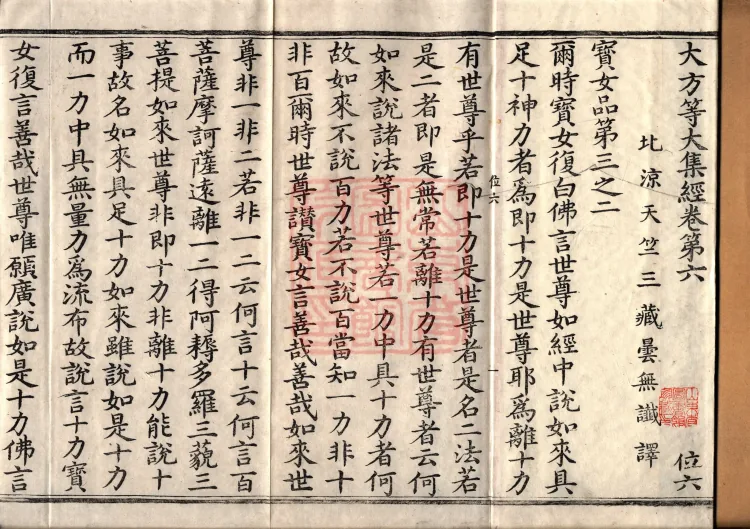 大方等大集經卷第六
北涼天竺三藏曇無讖譯
位六
寶女品第三之二
爾時寶女復白佛言世尊如經中說如來具
足十神力者爲即十力是世尊耶爲離十力
位六
一
有世尊乎若即十力是世尊者是名二法若
是二者即是無常若離十力有世尊者云何
如來說諸法等世尊若一力中具十力者何
故如來不說百力若不說百當知一力非十
非百爾時世尊讚寶女言善哉善哉如來世
尊非一非二若非一二云何言十云何言百
菩薩摩訶薩遠離一二得阿耨多羅三藐三
菩提如來世尊非即十力非離十力能說十
事故名如來具足十力如來雖說如是十力
而一力中具無量力爲流布故說言十力寶
女復言善哉世尊唯願廣說如是十力佛言